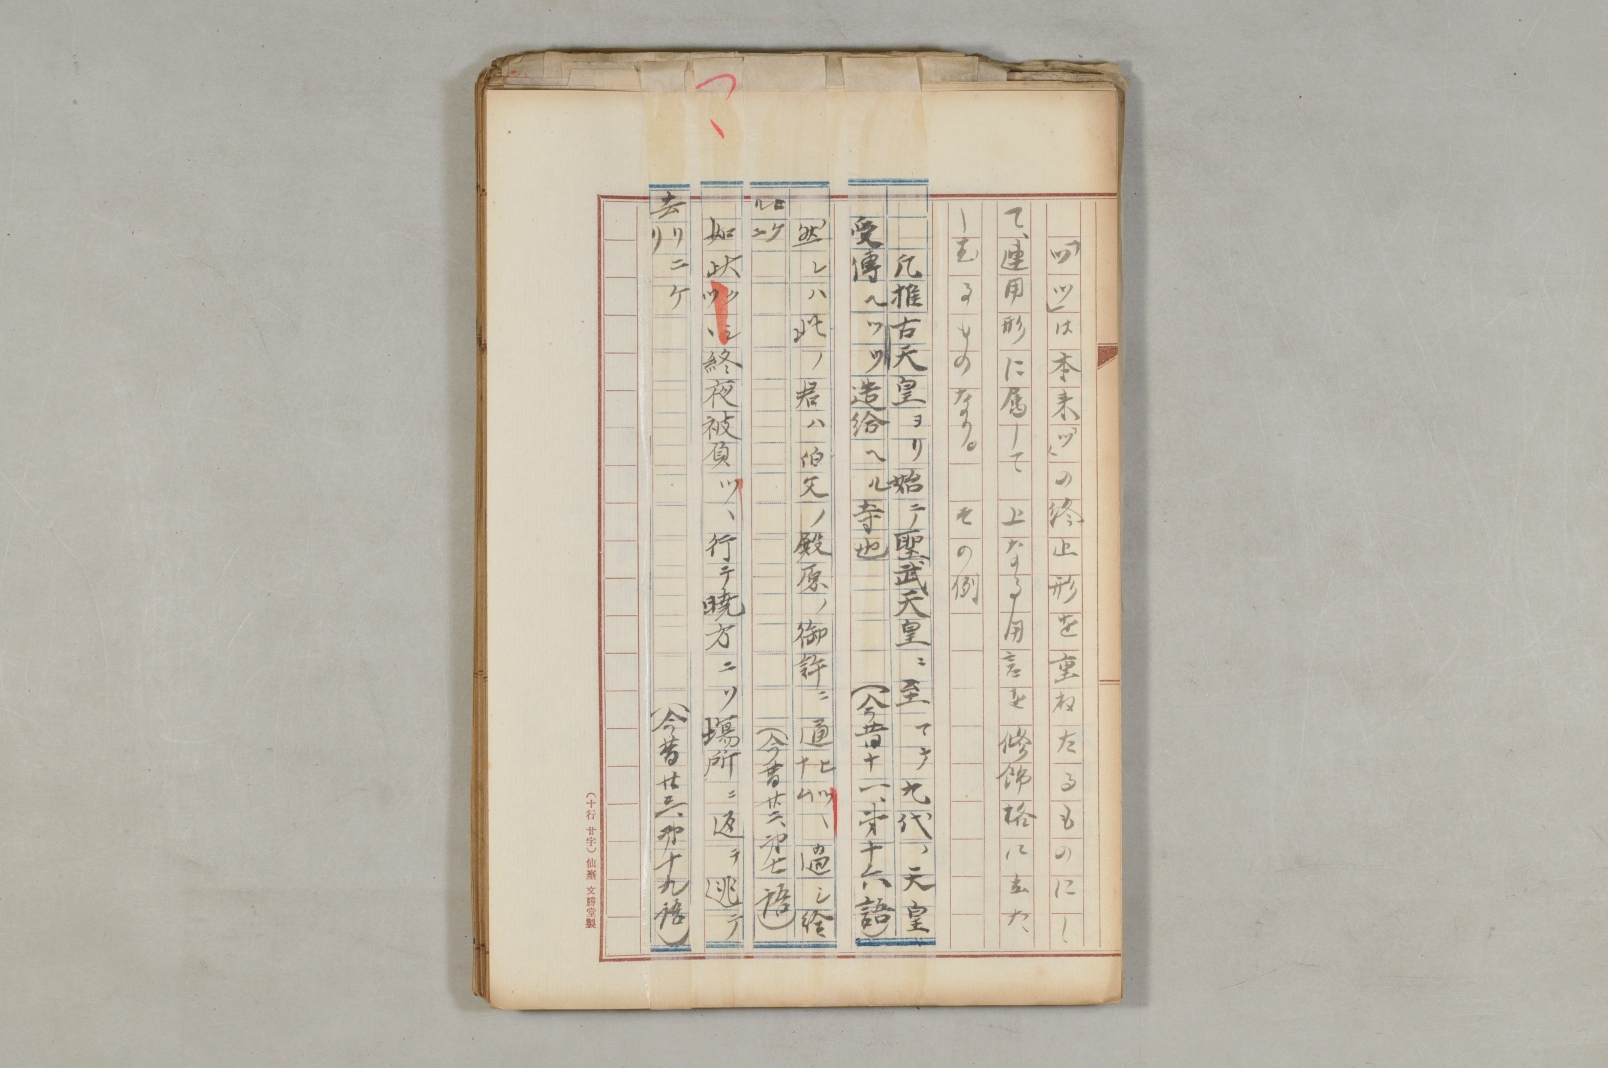 「ツツ」は本来「ツ」の終止形を重ねたるものにし
て、連用形に属して上なる用言を修飾格に立た
しむるものなり。その例
凡推古天皇ヨリ始テ聖武天皇ニ至マテ九代ノ天皇
受傳ヘツツ造給ヘル寺也 (今昔十一、第十六語)
然レハ此ノ君ハ伯父ノ殿原ノ御許ニ通ヒナムツヽ過シ給
ヒケルニ (今昔廿二、第七語)
如此ツヽ終夜被負ツヽ行テ暁方ニソ場所ニ返テ逃テ
去リニケリ (今昔廿三、第十九語)
(十行廿字)仙臺 文勝堂製